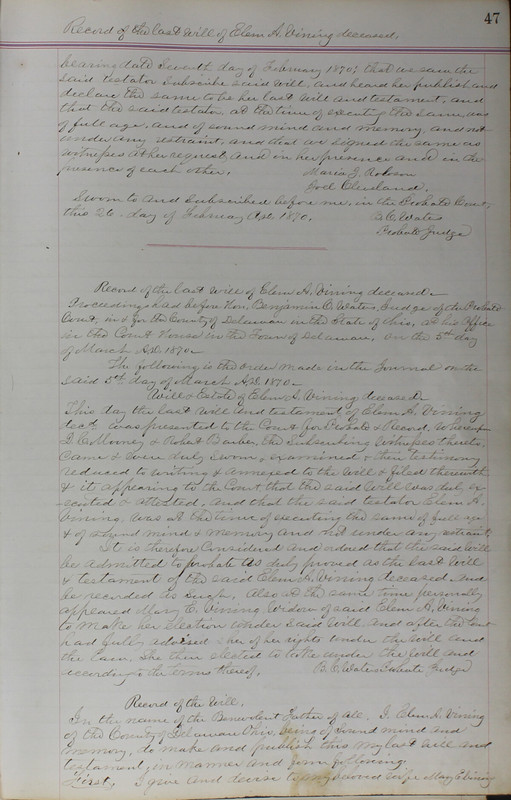 47
Record of the last Will of Elem A. Vining deceased.
bearing date Seventh day of February 1870; that we saw the
said testator subscribe said Will, and heard her publish and
declare the same to be her last Will and testament, and
that the said testator at the time of executing the same, was
of full age, and of sound mind and memory, and not
under any restraint, and that we signed the same as
witnesses at her request, and in her presence and in the
presence of each other. Maria J.
Joel Cleveland.
Sworn to and Subscribed before me, in the Probate Court,
this 26 day of February A.D. 1870. B. C. Waters
Probate Judge
Record of the last Will of Elem A. Vining deceased
Proceedings had before Hon. Benjamin C. Waters, Judge of the Probate
Court, in & for the County of Delaware in the State of Ohio, at his Office
in the Court House in the Town of Delaware, on the 5th day
of March A.D. 1870.
The following is the order made in the Journal on the
said 5th day of March A.D. 1870
Will & Estate of Elem A. Vining deceased
This day the last Will and testament of Elem A. Vining
decd. was presented to the Court for Probate & Record. Whereupon
J. C. Mooney & Robert Barber, the Subscribing Witnesses thereto,
Came & were duly Sworn & examined & their testimony
reduced to writing & annexed to the Will & filed therewith
& it appearing to the Court, that the said Will was duly ex-
ecuted & attested, and that the said testator Elem A.
Vining, was at the time of executing the same of full age
& of sound mind & memory and not under any restraint,
It is therefore Considered and ordered that the said Will
be admitted to probate as duly proved as the last Will
& testament of the said Elem A. Vining deceased, and
be recorded as such. Also at the same time personally
appeared Mary E. Vining Widow of said Elem A. Vining
to make her Election under said Will, and after the Court
had fully advised her of her rights under the Will and
the Law, She then elected to take under the Will and
according to the terms thereof. B. C. Waters Probate Judge
Record of the Will.
In the name of the Benevolent Father of all. I, Elem A. Vining
of the County of Delaware Ohio, being of Sound mind and
memory, do make and publish this my last Will and
testament, in manner and form following.
First, I give and devise to my beloved wife Mary E Vining